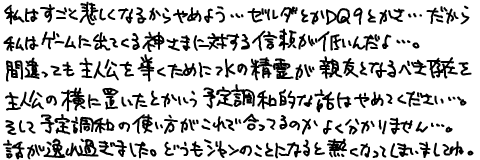 私はすごく悲しくなるからやめよう…ゼルダとかDQ9とかさ…だから
私はゲームに出てくる神さまに対する信頼が低いんだよ…。
間違っても主人公を導くために水の精霊が親友となるべき存在を
主人公の横に置いたとかいう予定調和的な話はやめてください…。
そして予定調和の使い方がこれで合ってるのかよく分かりません…。
話が逸れ過ぎました。どうもジャンのことになると熱くなってしまいましてね。